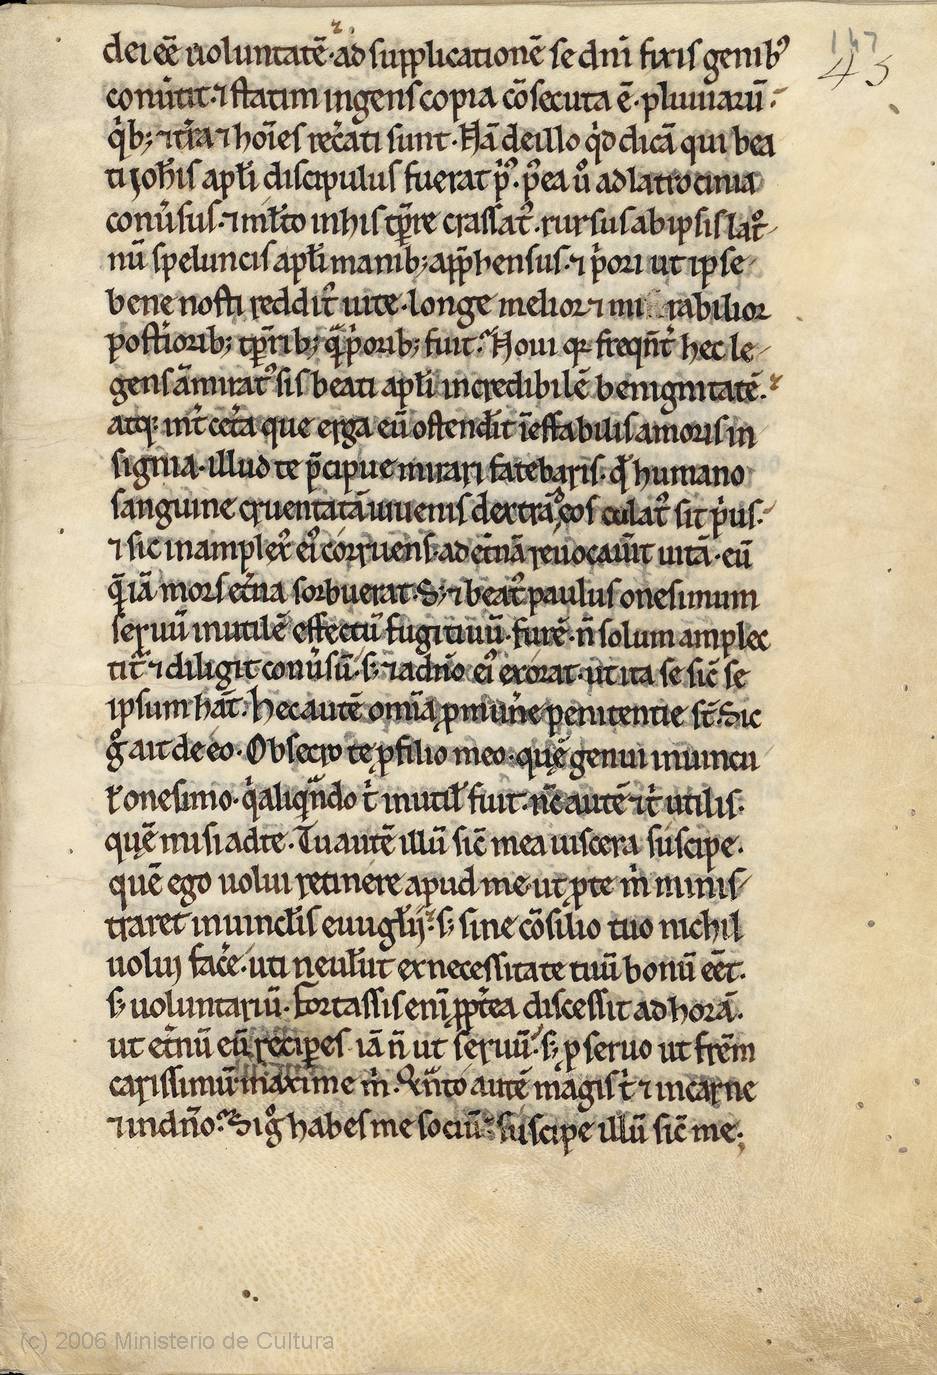 147
43
dei eē uoluntatē· ⁊ ad supplicationē se dn̄i fixis genib᾽
conuͥtit· ⁊ statim ingens copia cōsecuta ē· pluuiarū·
qͥb; ⁊ tr̄a ⁊ hoīes rec̄ati sunt· Nā de illo qͥd dicā qui bea
ti ioh̄is apl̄i discipulus fuerat p̄᾽· p᾽ea ů ad latrocinia
conu᾽sus· ⁊ ml̄to in his tp̄re crassat᾽· rursus ab ipsis lat᾽
nū speluncis apl̄i manib; app̄hensus· ⁊ pͥori ut ipse
bene nosti reddit᾽ uite· longe melior ⁊ mi rabilior
postͥorib; tp̄rib; qͣ̄ pͥorib; fuit· Noui qꝛ freqn̄t᾽ hec le
gens āmirat᾽ sis beati apl̄i incredibilē benignitatē· ⁊
atq; int᾽ cet᾽a que erga eū ostendit īeffabilis amoris in
signia· illud te p̄cipue mirari fatebaris· qd̄ humano
sanguine cruentatā iuuenis dextrā eos culat᾽ sit pͥus·
⁊ sic in amplex᾽ ei᾽ corruens· ad et᾽nā reuocauīt uitā· eū
qͣ̄ iā mors et᾽na sorbuerat· S; ⁊ beat᾽ paulus onesimum
seruū inutilē effectū fugitiuū· furē· n̄ solum amplec
tit᾽ ⁊ diligit conu᾽sū· s; ⁊ ad dn̄o ei᾽ exorat· ut ita se sic̄ se
ipsum hāt· hec autē omīa ꝓ mun᾽e penitentie st̄· Sic
gͦ ait de eo· Obsecro te ꝓ filio meo· quē genui in uincu
l̄ onesimo· qͥ aliqn̄do t᾽ inutil̄ fuit· nc̄ autē ⁊ t᾽ utilis·
quē misi ad te· Tu autē illū sic̄ mea uiscera suscipe·
quē ego uolui retinere apud me· ut ꝓ te m̄ minis
traret in uinclis euuglij· s; sine cōsilio tuo nichil
uoluj fac᾽e· uti ne ul̄ut ex necessitate tuū bonū eēt·
s; uoluntariū· Fortassis enī ꝓpt᾽ea discessit ad horā·
ut et᾽nū eū recipes iā n̄ ut seruū· s; ꝓ seruo ut frēm
carissimū maxime m᾽· Qn̄to autē magis t᾽ ⁊ in carne
⁊ in dn̄o· Si gͦ habes me sociū· suscipe illū sic̄ me;
(c) 2006 Ministerio de Cultura